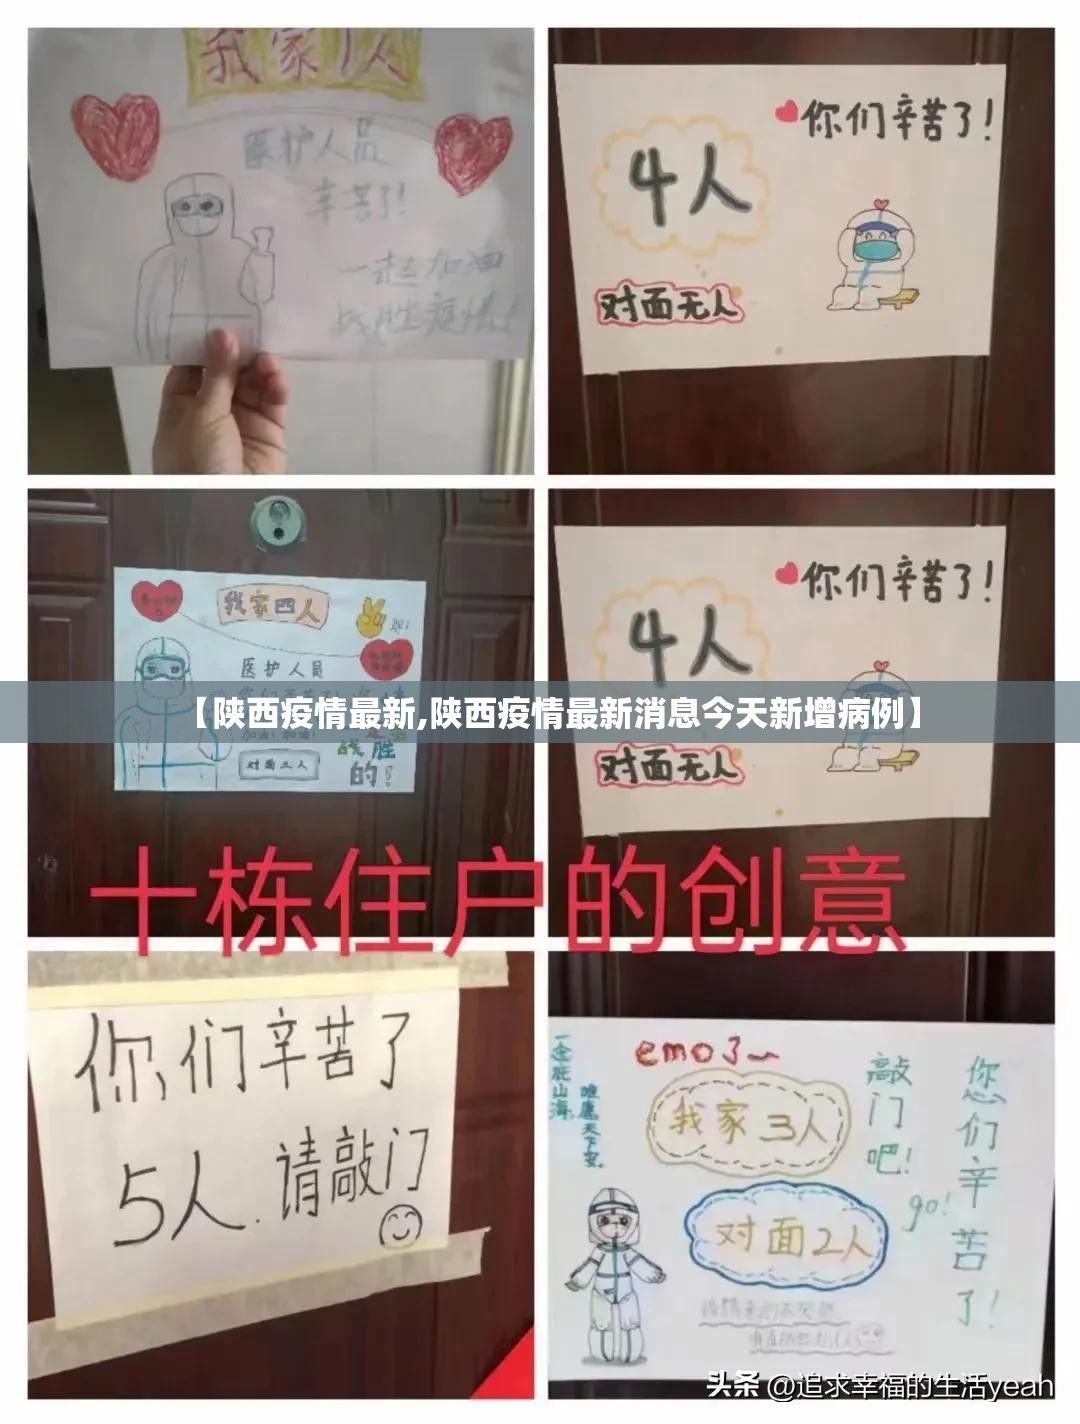 我家1人
医护人员
辛苦了!
一起加油
战胜疫情!
你们辛苦了!
4人
对面无人
我家四人
医护人员
对面三人
胜
的!
你们辛苦了!
4人
对面无人
【陕西疫情最新,陕西疫情最新消息今天新增病例】
十栋住户的创意
你们辛苦了
5人.请敲门
emo了~
一念赴山海
唯愿天下安
我家3人
对面2人
敲门吧!
go!
您们辛苦了!
头条 @追求幸福的生活yeah